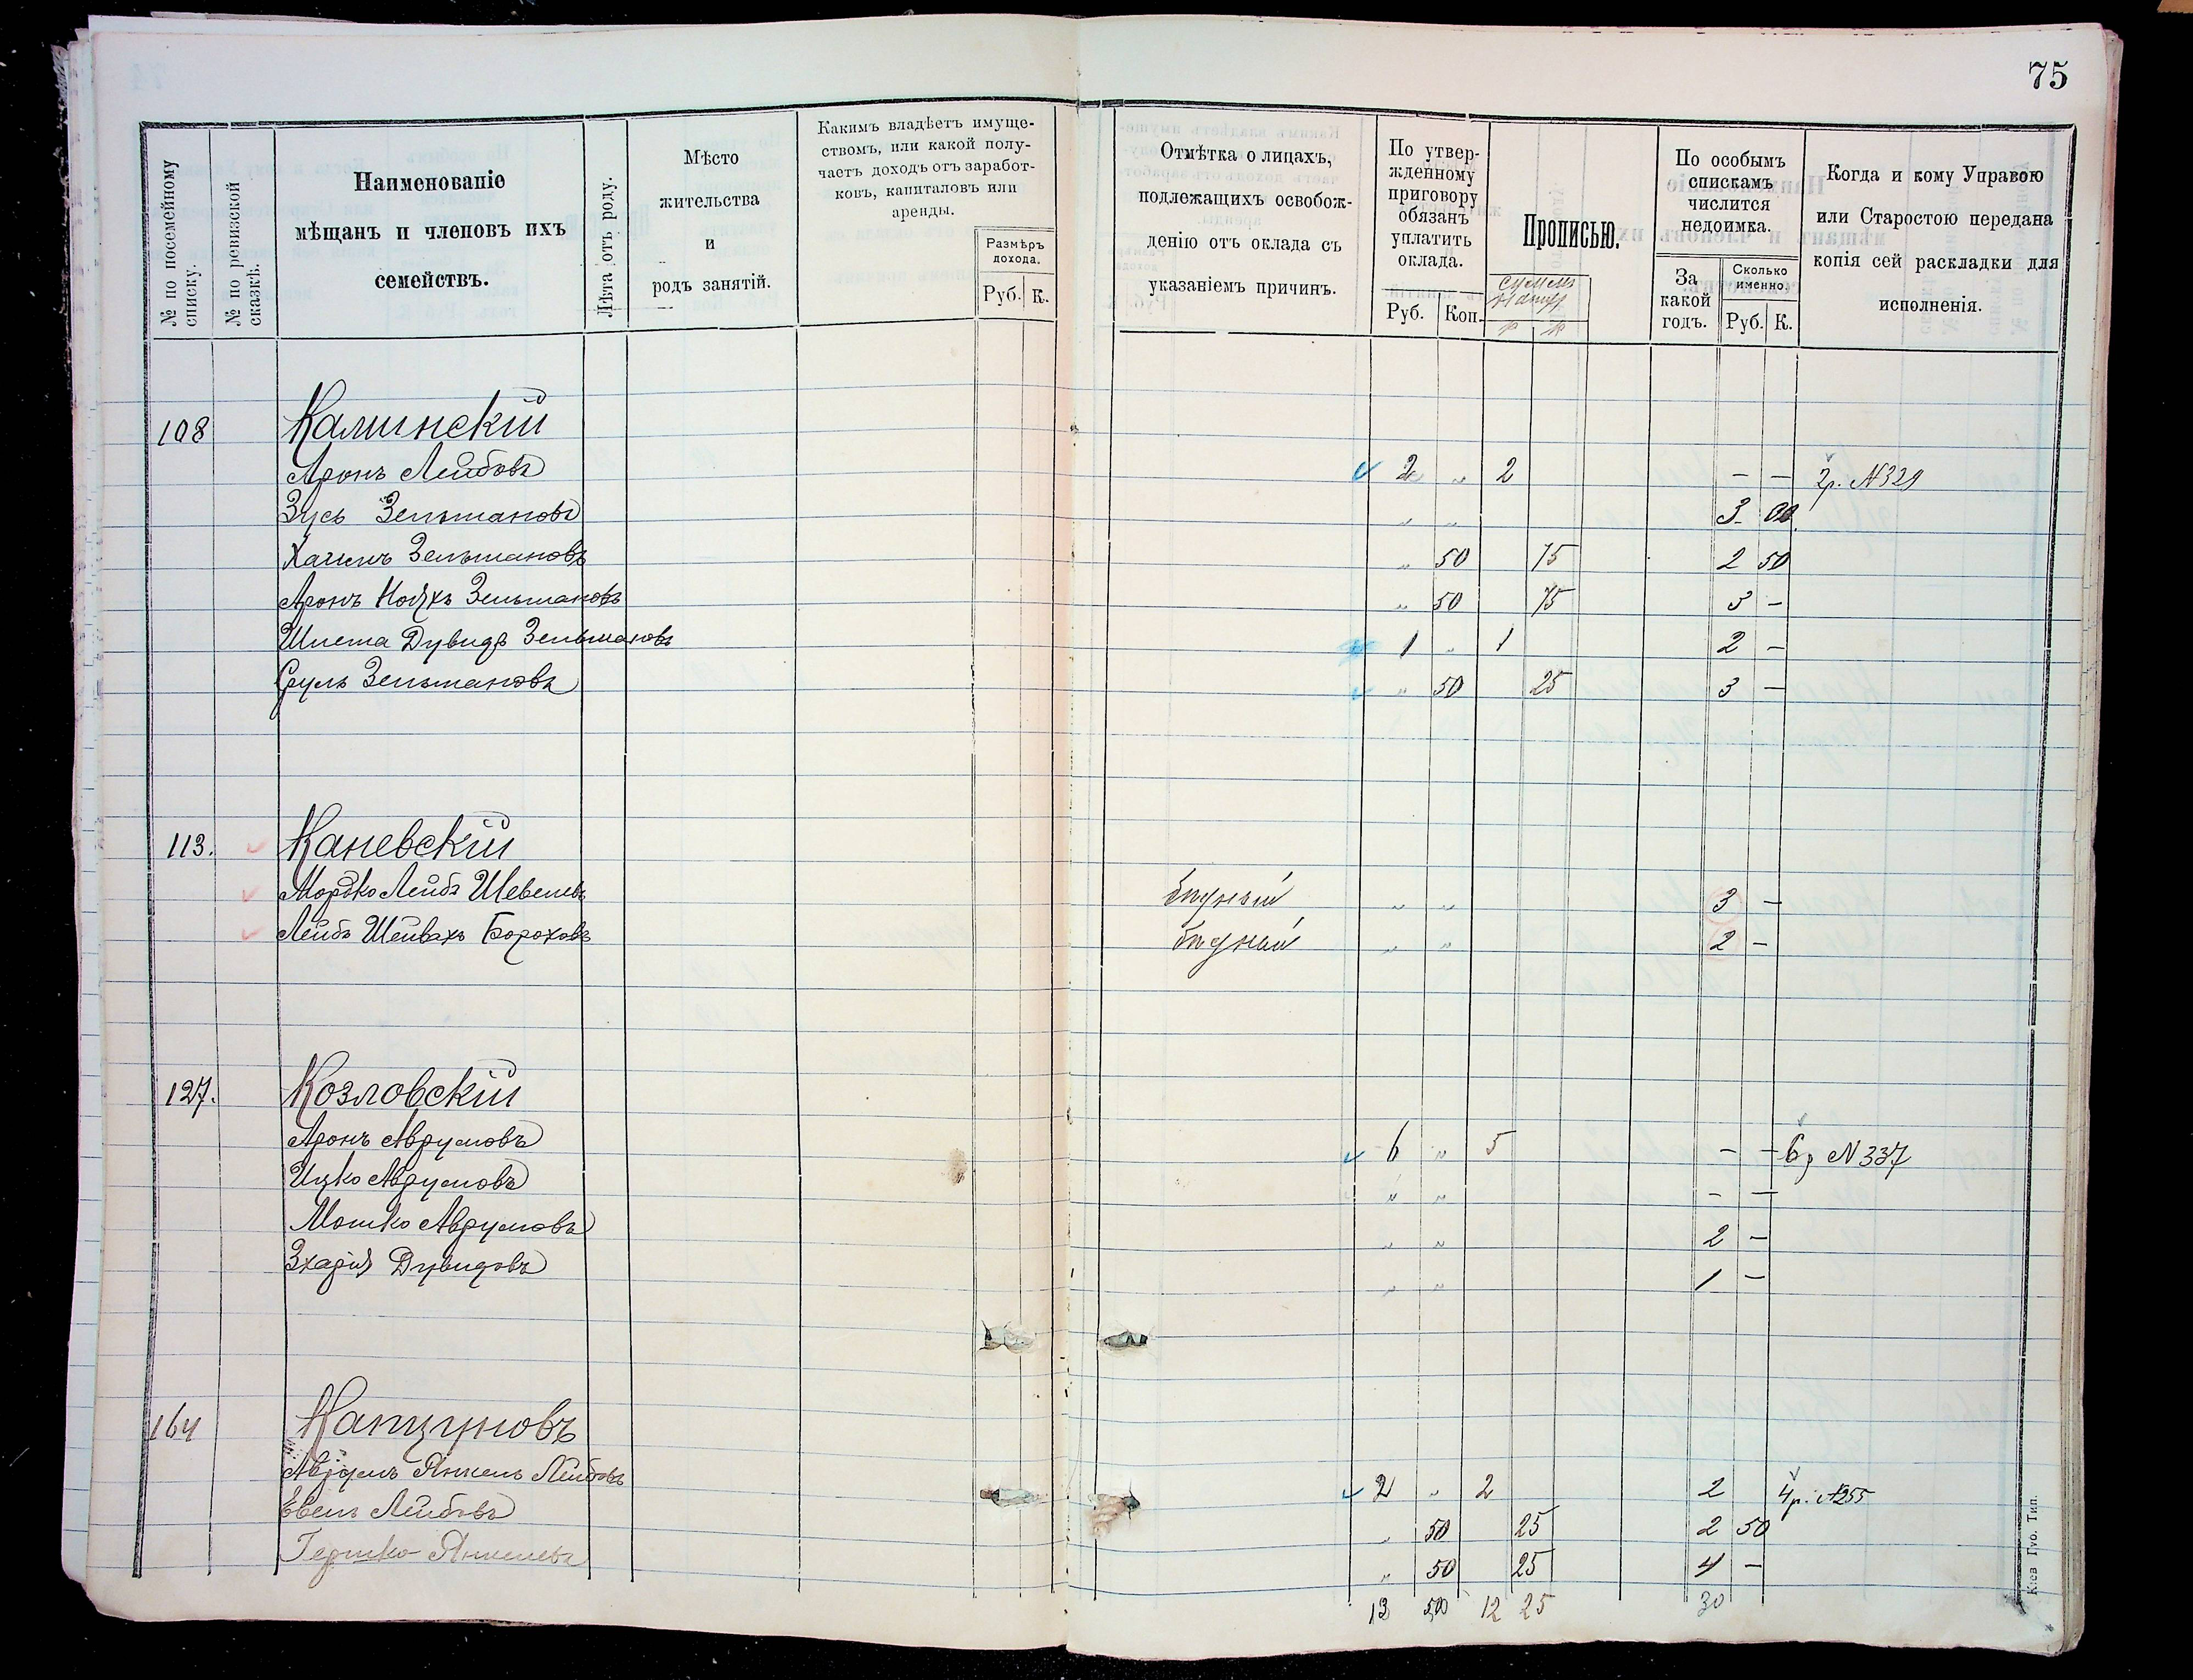 75
№ по посемейному списку.
№ по ревизской сказкѣ.
Наименованіе
мѣщанъ и членовъ ихъ
семействъ.
Лѣта отъ роду.
Мѣсто
жительства
и
родъ занятій.
Какимъ владѣетъ имуще-
ствомъ, или какой полу-
чаетъ доходъ отъ заработ-
ковъ, капиталовъ или
аренды.
Размѣръ
дохода.
Руб. К.
Отмѣтка о лицахъ,
подлежащихъ освобож-
денію отъ оклада съ
указаніемъ причинъ.
По утвер-
жденному
приговору
обязанъ
уплатить
оклада.
Руб. Коп.
Прописью.
р к
По особымъ
спискамъ
числится
недоимка.
За
какой
годъ.
Сколько
именно.
Руб. К.
Когда и кому Управою
или Старостою передана
копія сей раскладки для
исполненія.
108 Калинскій
Аронъ Лейбовъ 2 „ 2 — — 2р. N329
Зусь Зельмановъ „ „ 3 00
Хаимъ Зельмановъ „ 50 75 2 50
Аронъ Нояхъ Зельмановъ „ 50 75 3 —
Шлема Дувидъ Зельмановъ 1 „ 1 2 —
Сруль Зельмановъ „ 50 25 3 —
113. Каневскій
Мордко Лейбъ Шевелевъ бѣдный „ „ 3 —
Лейбъ Шейвахъ Бороховъ бѣдный „ „ 2 —
127. Козловскій
Аронъ Аврумовъ 6 „ 5 — — 6р N337
Ицко Аврумовъ „ „ — —
Мошко Аврумовъ „ „ 2 —
Зхарія Дувидовъ „ „ 1 —
164 Капзуновъ
Аврумъ Янкель Лейбовъ 2 „ 2 2 4р. N255
Евель Лейбовъ „ 50 25 2 50
Гершко Янкелевъ „ 50 25 4 —
13 12 25 30
Кіев Губ. Тип.